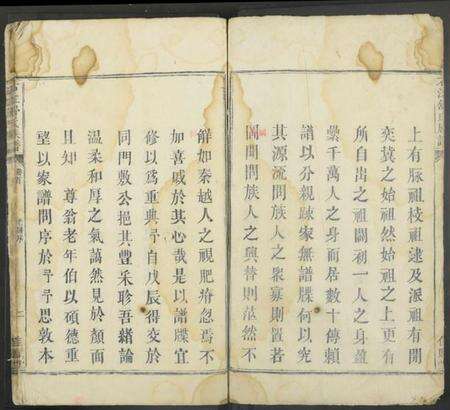 上有脈祖枝祖逮及派祖有開
奕冀之始祖然始祖之上更有
所自出之祖闢初一人之身盈
纍千萬人之身而居數十傳賴
譜以分親疎家無譜牒何以究
其源流問族人之衆寡則置若
罔聞問族人之興替則茫然不
解如秦越人之視肥瘠忽焉不
加喜戚於其心哉是以譜牒宜
修以爲重典予自戊辰得交於
同門敷公挹其豐采聆吾緒論
溫柔和厚之氣藹然見於顏面
且知 尊翁老年伯以碩德重
望以家譜問序於予予思敦本